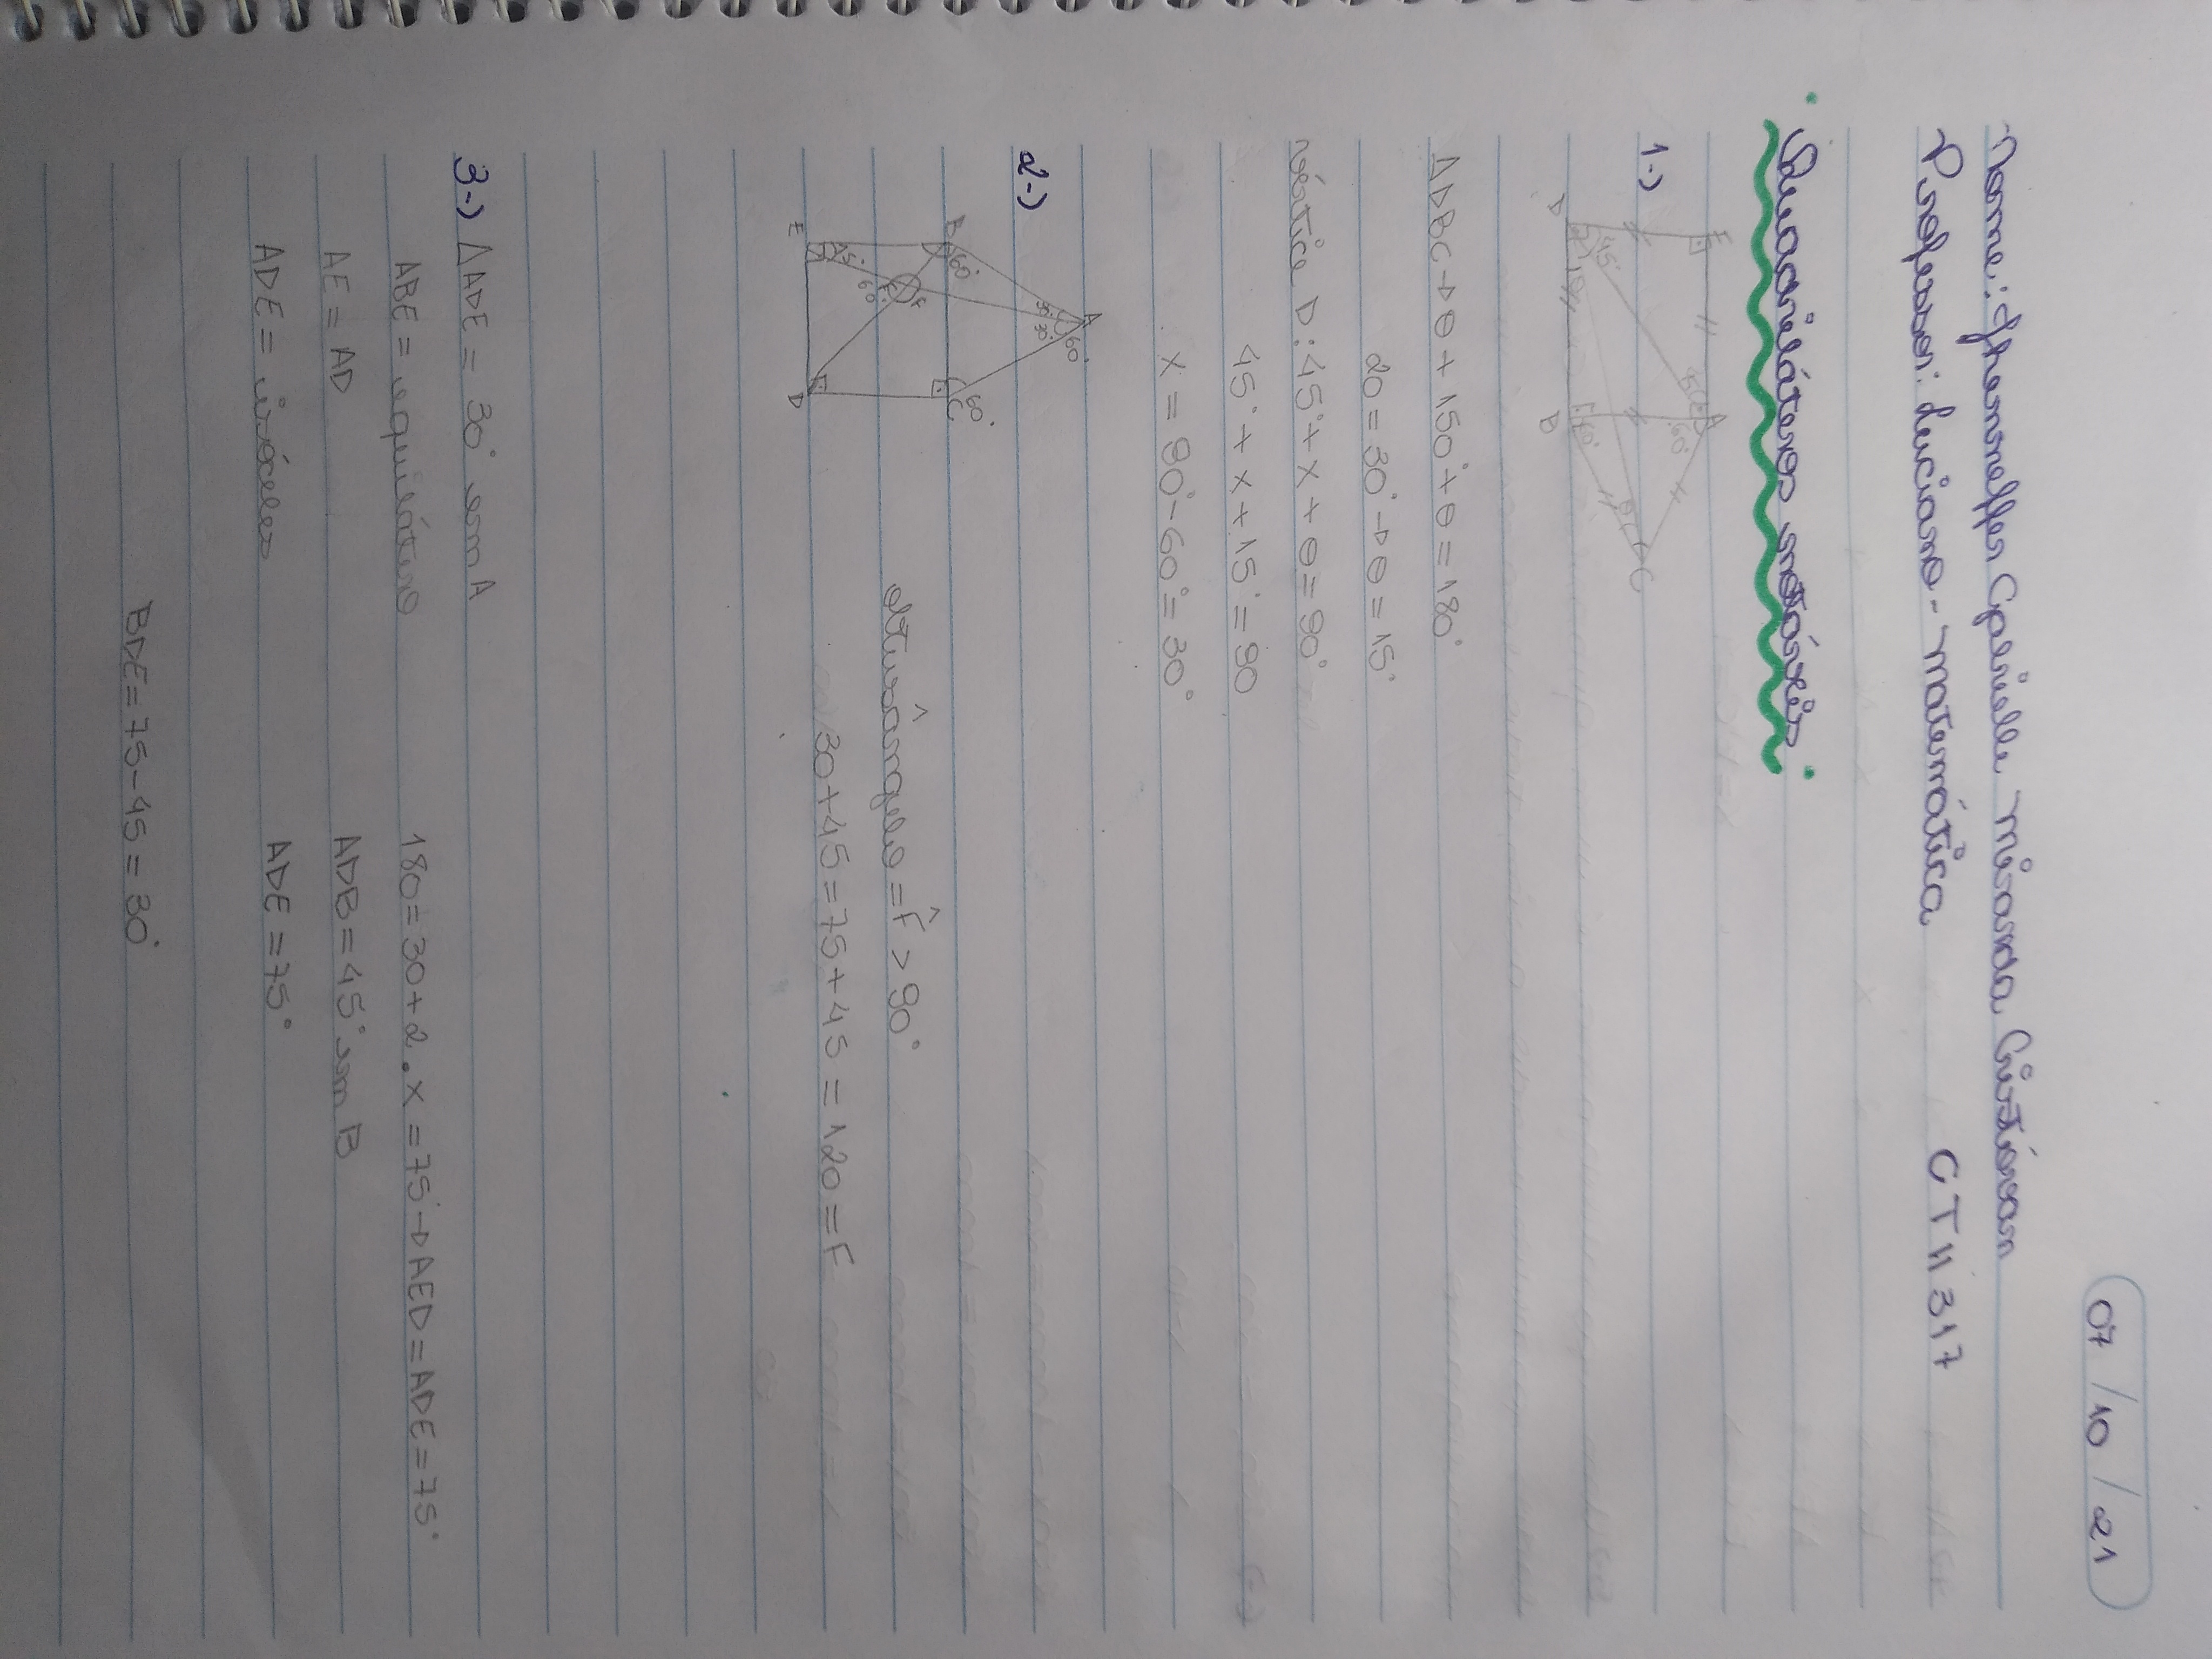 07 / 10 / 21
Nome: Jhenneffer Gabrielle Miranda Cristóvam
Professor: Luciano - matemática CTII 317
Quadriláteros notáveis
E A
60°
1-) C
45° θ
60°
D B
ΔDBC → θ + 150° + θ = 180°
2θ = 30° → θ = 15°
vértice D: 45° + x + θ = 90°
45° + x + 15° = 90
x = 90° - 60° = 30°
A 60°
2-) 30°
B 60° 60° C
F
60°
75°
E D
obtusângulo = F̂ > 90°
30 + 45 = 75 + 45 = 120 = F
3-) ΔADE = 30° em A
ABE = equilátero 180 = 30 + 2 . x = 75 → AED = ADE = 75°
AE = AD ADB = 45° em B
ADE = isóceles ADE = 75°
BDE = 75 - 45 = 30°